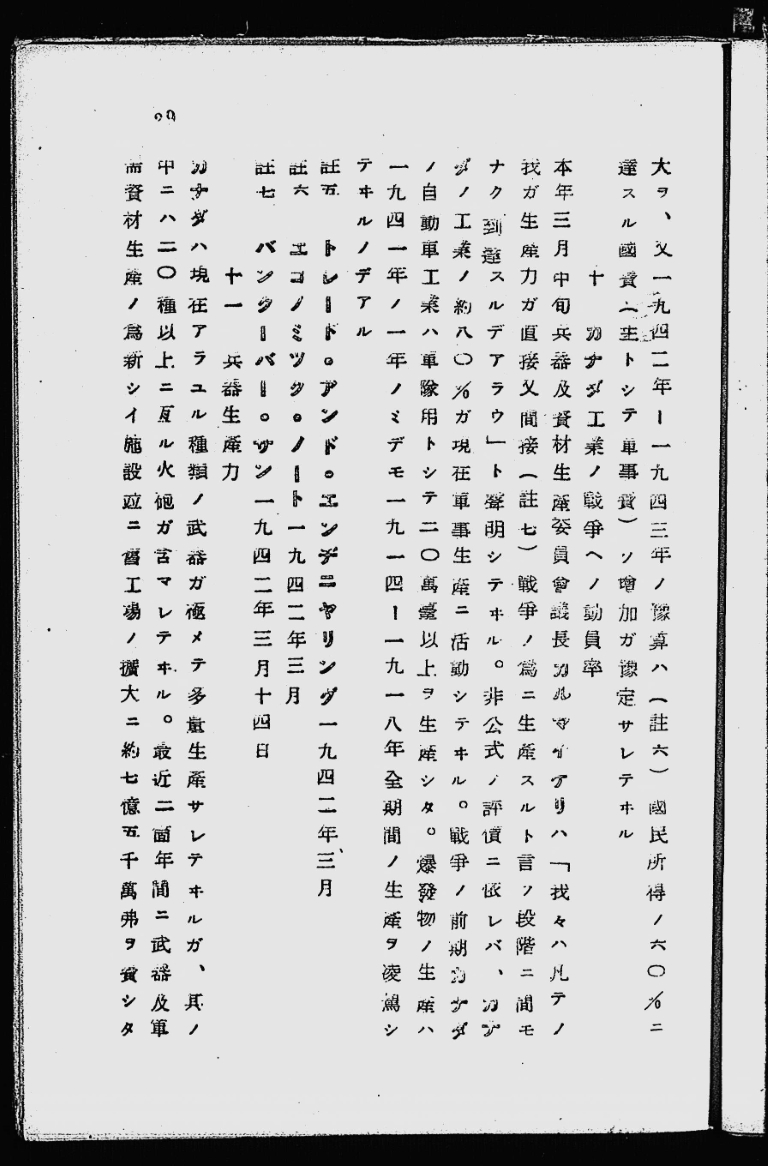 大ヲ、又一九四二年ー一九四三年ノ豫算ハ(註六)國民所得ノ六〇%ニ
達スル國費(主トシテ軍事費)ノ増加ガ豫定サレテヰル
十 カナダ工業ノ戰爭ヘノ動員率
本年三月中旬兵器及資材生産委員會議長カルマイアリハ「我々ハ凡テノ
我ガ生産力ガ直接又間接(註七)戰爭ノ爲ニ生産スルト言フ段階ニ間モ
ナク到達スルデアラウ」ト聲明シテヰル。非公式ノ評價ニ依レバ、カナ
ダノ工業ノ約八〇%ガ現在軍事生産ニ活動シテヰル。戰爭ノ前期カナダ
ノ自動車工業ハ軍隊用トシテ二〇萬臺以上ヲ生産シタ。爆發物ノ生産ハ
一九四一年ノ一年ノミデモ一九一四ー一九一八年全期間ノ生産ヲ凌駕シ
テヰルノデアル
註五 トレード。アンド。エンヂニヤリング一九四二年三月
註六 エコノミツク。ノート一九四二年三月
註七 バンクーバー。サン一九四二年三月十四日
十一 兵器生産力
カナダハ現在アラユル種類ノ武器ガ極メテ多量生産サレテヰルガ、其ノ
中ニハ二〇種以上ニ亙ル火砲ガ含マレテヰル。最近二箇年間ニ武器及軍
需資材生産ノ爲新シイ施設竝ニ舊工場ノ擴大ニ約七億五千萬弗ヲ費シタ